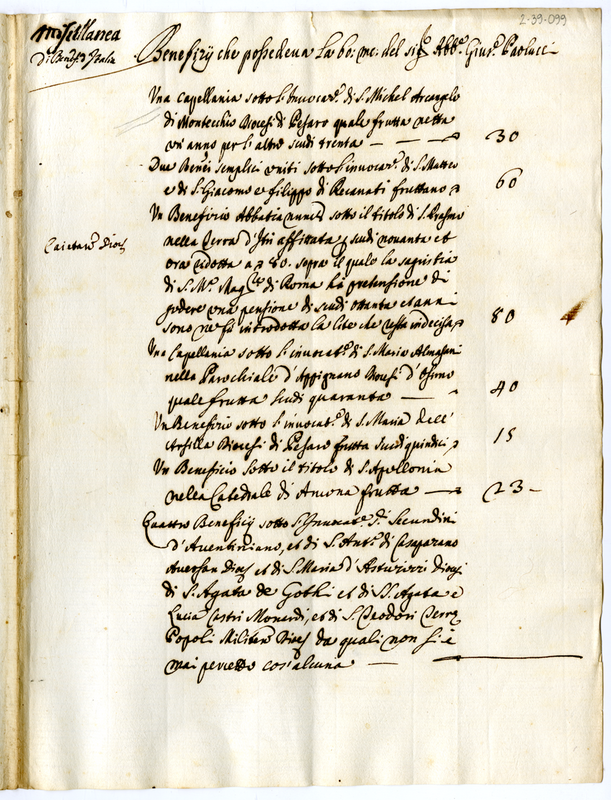 2-39-099
Miscellanea
Di Benef: d'Italia
Benefizij che possedeva La bo: me: del sig.r Abb.e Gius.e Paolucci
Una capellania sotto l'invocaz.e di S. Michel Arcangelo
di Montecchio Diocesi di Pesaro quale frutta netta
un anno per l'altro scudi trenta — 30
Due Benef.i semplici uniti sotto l'invocaz.e di S. Matteo
e di S. Giacomo e filippo di Recanati fruttano 60
Un Benefizio Abbatia sotto il titolo di S. Erasmo
Caietan Dioes
nella Terra d'Itri affittata scudi novanta et
ora ridotta a 80. sopra il quale la sagristia
di S. M. Mag.re di Roma hà pretensione di
godere una pensione di scudi ottanta et anni
sono ne fù introdotta la lite che resta indecisa 80
Una Capellania sotto l'invocat.e di S. Maria
nella Parochiale d'Appignano Diocesi d'Osimo
quale frutta scudi quaranta — 40
Un Benefizio sotto l'invocat.e di S. Maria dell'
Arsilla Diocesi di Pesaro frutta scudi quindici 15
Un Beneficio sotto il titolo di S. Apollonia
nella Catedrale di Ancona frutta — 23 –
Quattro Beneficij sotto l'Invocat.e di Secundini
d'Aventiniano, et di S. Ant.o di Casapazano
Aversan Dioes et di S. Maria d'Asturizzi Dioes
di S. Agata de Gothi et di SS. Agata e
Lucia Castri Monardi, et di S. Teodori Terre
Popoli Militen Dioes da quali non si è
mai percetto cos'alcuna —